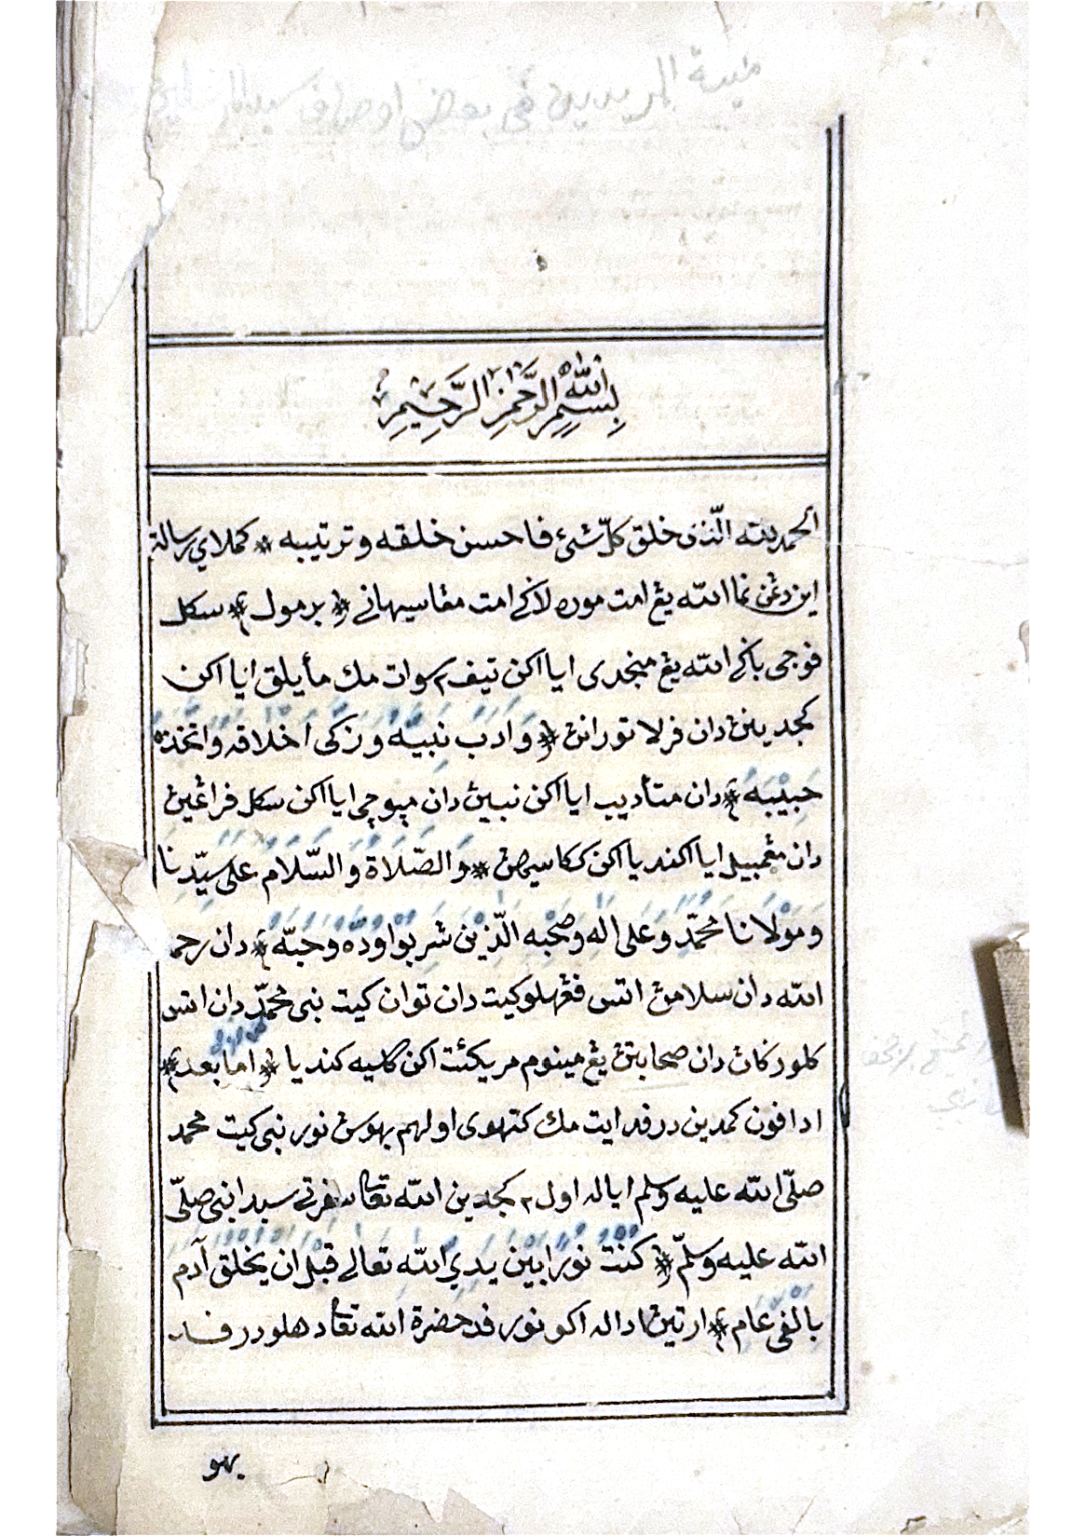 منية المريدين في بعض اوصاف سيد المرسلين
بسم الله الرحمن الرحيم
الحمد لله الّذى خلق كلّ شئ فاحسن خلقه وترتيبه * كملاي رسالة
اين دڠن نما الله يڠ امت موره لاكي امت مڠاسيهاني ﴿ برمول ﴾ سكل
فوجي باكي الله يڠ منجدى ايا اكن تيف٢ سوات مك مأيلق ايا اكن
كجدينڽ دان فرلا تورانڽ ﴿ وَاَدَّبَ نَبِيَّهُ وَزَكّٰى اَخْلَاقَهُ وَاتَّخَذَهُ
حَبِيْبَهُ ﴾ دان متأديب ايا اكن نبيڽ دان مموجي ايا اكن سكل فراڠيڽ
دان مڠمبيل ايا اكندي اكن ككاسيهڽ * وَالصَّلَاةُ وَالسَّلَامُ عَلٰى سَيِّدِنَا
وَمَوْلَانَا مُحَمَّدٍ وَعَلٰى اٰلِهِ وَصَحْبِهِ الَّذِيْنَ شَرِبُوْا وُدَّهُ وَحُبَّهُ ﴾ دان رحمة
الله دان سلامڽ اتس فڠهلو كيت دان توان كيت نبي محمّد دان اتس
كلورڬاڽ دان صحابتڽ يڠ مينوم مريكئت اكن كاسيه كنديا ﴿ اما بعد ﴾
ادافون كمدين درفد ايت مك كتهوى اولهم بهوسڽ نور نبي كيت محمد
صلّى الله عليه وسلم اياله اول٢ كجدين الله تعالى سفرتي سبدا نبي صلّى
الله عليه وسلّم ﴿ كُنْتُ نُوْرًا بَيْنَ يَدَيِ اللهِ تَعَالٰى قَبْلَ اَنْ يَخْلُقَ آدَمَ
بِاَلْفَيْ عَامٍ ﴾ ارتيڽ اداله اكو نور فد حضرة الله تعالى دهلو درفد
بهو